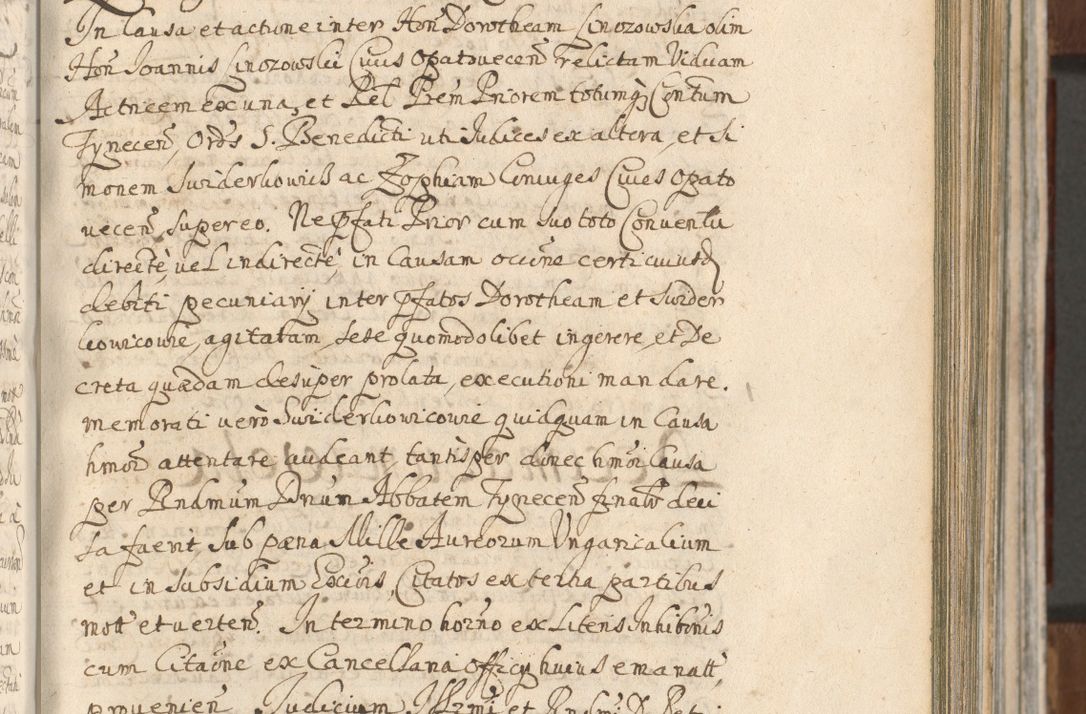 In Causa et actione inter Hon Dorotheam Sinozowska olim
Hon Joannis Sinozowski Civis Opatovecen relictam Viduam
Actricem ex una, et Rel Prem Priorem totumq Conutum
Tynecen, Ords S. Benedicti uti Iudices ex altera, et Si
monem Swiderkowicz ac Zophiam Coniuges Cives Opato
vecen, super eo. Ne pfati Prior cum suo toto Conventu
directè, vel indirectè, in Causam occne certi cuiusd
debiti pecuniarij inter pfatos Dorotheam et Swider
kowicowie, agitatam, sese quomodolibet ingerere, et De
creta quædam desuper prolata, executioni mandare.
memorati verò Swiderkowicowie quidquam in Causa
hmoi attentare audeant, tantisper donec hmoi Causa
per Rndmum Dnum Abbatem Tynecen finalr deci
sa fuerit, sub pæna Mille Aureorum Ungaricalium
et in subsidium Excois, Citatos ex terha partibus
mott et verten. In termino horno ex Litens Inhibonis
cum Citaone ex Cancellaria officij huius emanatt,
provenien Iudicium Illrmi et Rndmi D.